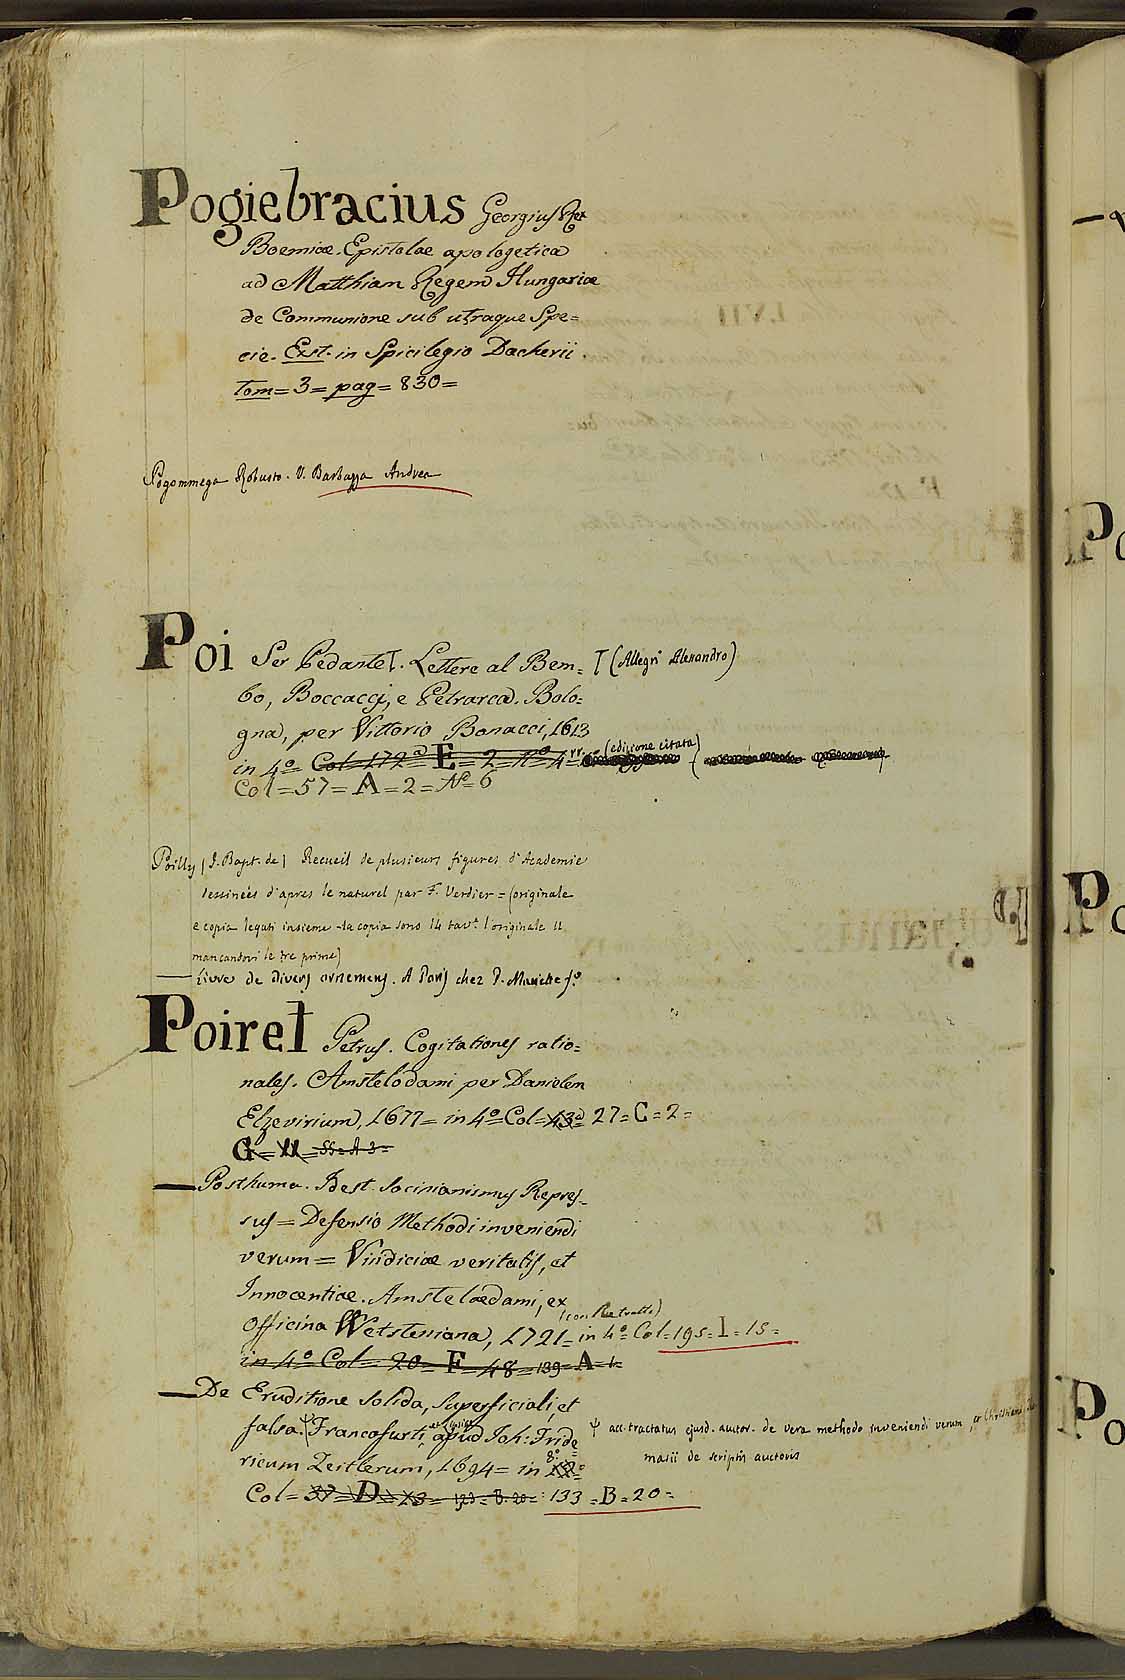 Pogiebracius Georgius Rex
Boemicæ. Epistolae apologetica
ad Matthiam Regem Hungariæ
de Communione sub utraque Spe=
cie. Exst. in Spicilegio Dacherii.
tom = 3 = pag = 830 =
Pogommega Robusto. V. Barbazza Andrea
Poi Ser Pedante T. Lettere al Bem= T (Allegri Alessandro)
bo, Boccacci, e Petrarca. Bolo=
gna, per Vittorio Bonacci, 1613
in 4º = Col = 172 = E = 2 = Nº 4 = (edizione citata)
Col = 57 = A = 2 = Nº 6
Poilly (J. Bapt. de) Recueil de plusieurs figures d'Academie
dessineés d'apres le naturel par F. Verdier = (originale
e copia legati insieme la copia sono 14 tav.e l'originale 11
mancandovi le tre prime)
— Livre de divers ornemens. A Paris chez P. Mariette fº
Poiret Petrus. Cogitationes ratio=
nales. Amstelodami per Danielem
Elzevirium, 1677 = in 4º = Col = 43 = 27 = C = 2 =
G = 11 = 55 = A 3 =
— Posthuma. Idest. Socinianismus Repres=
sus = Defensio Methodi inveniendi
verum = Vindiciæ veritatis, et
Innocentiæ. Amstelaedami, ex
(con Ritratto)
Officina Wetsteniana, 1721 = in 4º Col = 195 = I = 15 =
in 4º Col = 20 = F = 48 = 139 = A = 1 =
— De Eruditione solida, superficiali, et
falsa. Ψ Francofurti, et Lipsiæ apud Joh: Fride Ψ acc. tractatus ejusd. auctor. de vera methodo inveniendi verum, et Christiani
ricum Zeitlerum, 1694 = in 8º = masii de scriptis auctoris
Col = 37 = D = 23 = 193 = B. 20 = 133 = B = 20 =